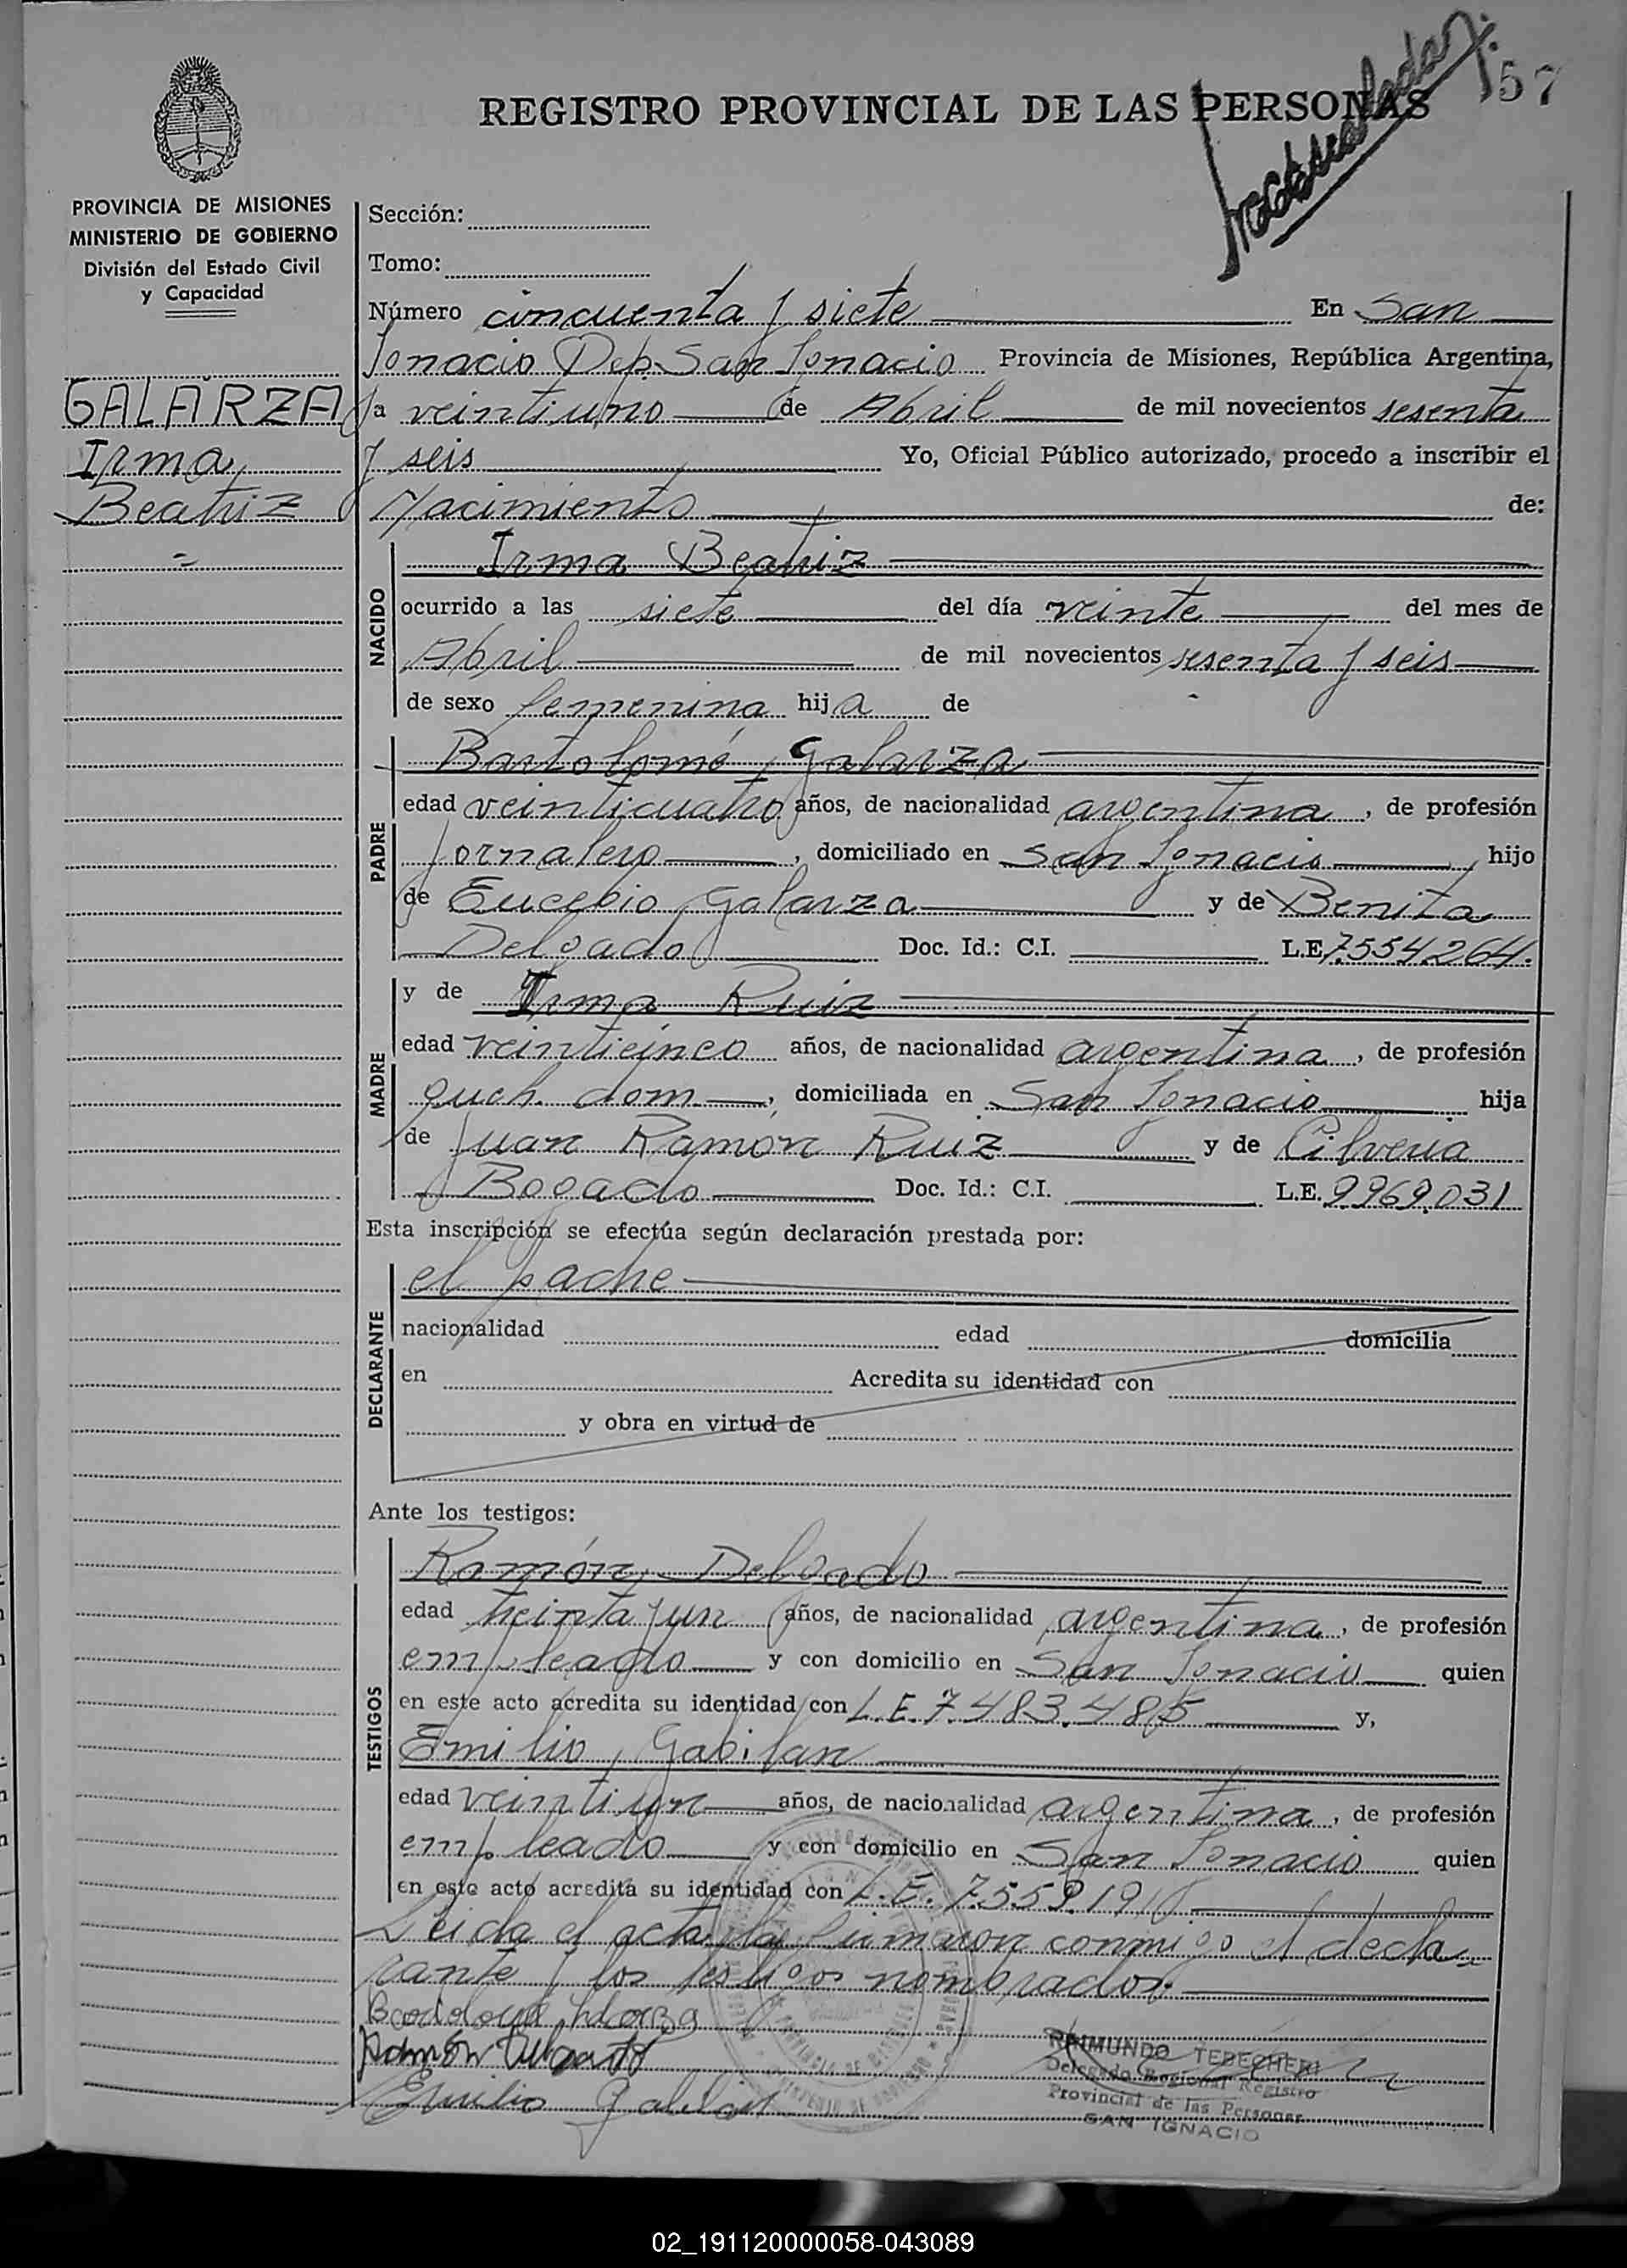 57
REGISTRO PROVINCIAL DE LAS PERSONAS
PROVINCIA DE MISIONES
MINISTERIO DE GOBIERNO
División del Estado Civil
y Capacidad
GALARZA
Irma
Beatriz
Sección:
Tomo:
Número cincuenta y siete En San
Ignacio Dep. San Ignacio Provincia de Misiones, República Argentina,
a veintiuno de Abril de mil novecientos sesenta
y seis Yo, Oficial Público autorizado, procedo a inscribir el
Nacimiento de:
NACIDO
Irma Beatriz
ocurrido a las siete del día veinte del mes de
Abril de mil novecientos sesenta y seis
de sexo femenina hija de
PADRE
Bartolomé Galarza
edad veinticuatro años, de nacionalidad argentina, de profesión
jornalero, domiciliado en San Ignacio, hijo
de Eucebio Galarza y de Benita
Delgado Doc. Id.: C.I. L.E. 7.554.264.
MADRE
y de Irma Ruiz
edad veinticinco años, de nacionalidad argentina, de profesión
queh. dom., domiciliada en San Ignacio hija
de Juan Ramón Ruiz y de Cilveria
Bogado Doc. Id.: C.I. L.E. 9.969.031
Esta inscripción se efectúa según declaración prestada por:
DECLARANTE
el padre
nacionalidad edad domicilia
en Acredita su identidad con
y obra en virtud de
Ante los testigos:
TESTIGOS
Ramón Delgado
edad treinta y un años, de nacionalidad argentina, de profesión
empleado y con domicilio en San Ignacio quien
en este acto acredita su identidad con L.E. 7.483.485 y,
Emilio Gabilan
edad veintiun años, de nacionalidad argentina, de profesión
empleado y con domicilio en San Ignacio quien
en este acto acredita su identidad con L.E. 7.559.191
Leida el acta la firmaron conmigo el decla-
rante y los testigos nombrados.
Ramón Delgado
Emilio Gabilan
RAIMUNDO TEPECHERI
Delegado Regional Registro
Provincial de las Personas
SAN IGNACIO
02_191120000058-043089